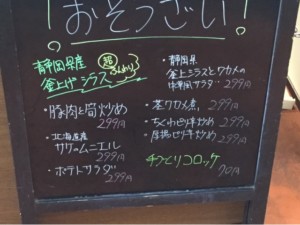 おそうざい!
静岡県産
釜上げシラス
・豚肉と筍炒め
299円
・北海道産
サケのムニエル
299円
・ポテトサラダ
299円
・静岡県
釜上シラスとワカメの
中華風サラダ 299円
・茎ワカメ煮 299円
・ちくわピリ辛炒め 299円
・厚揚ピリ辛炒め 299円
手づくりコロッケ
90円